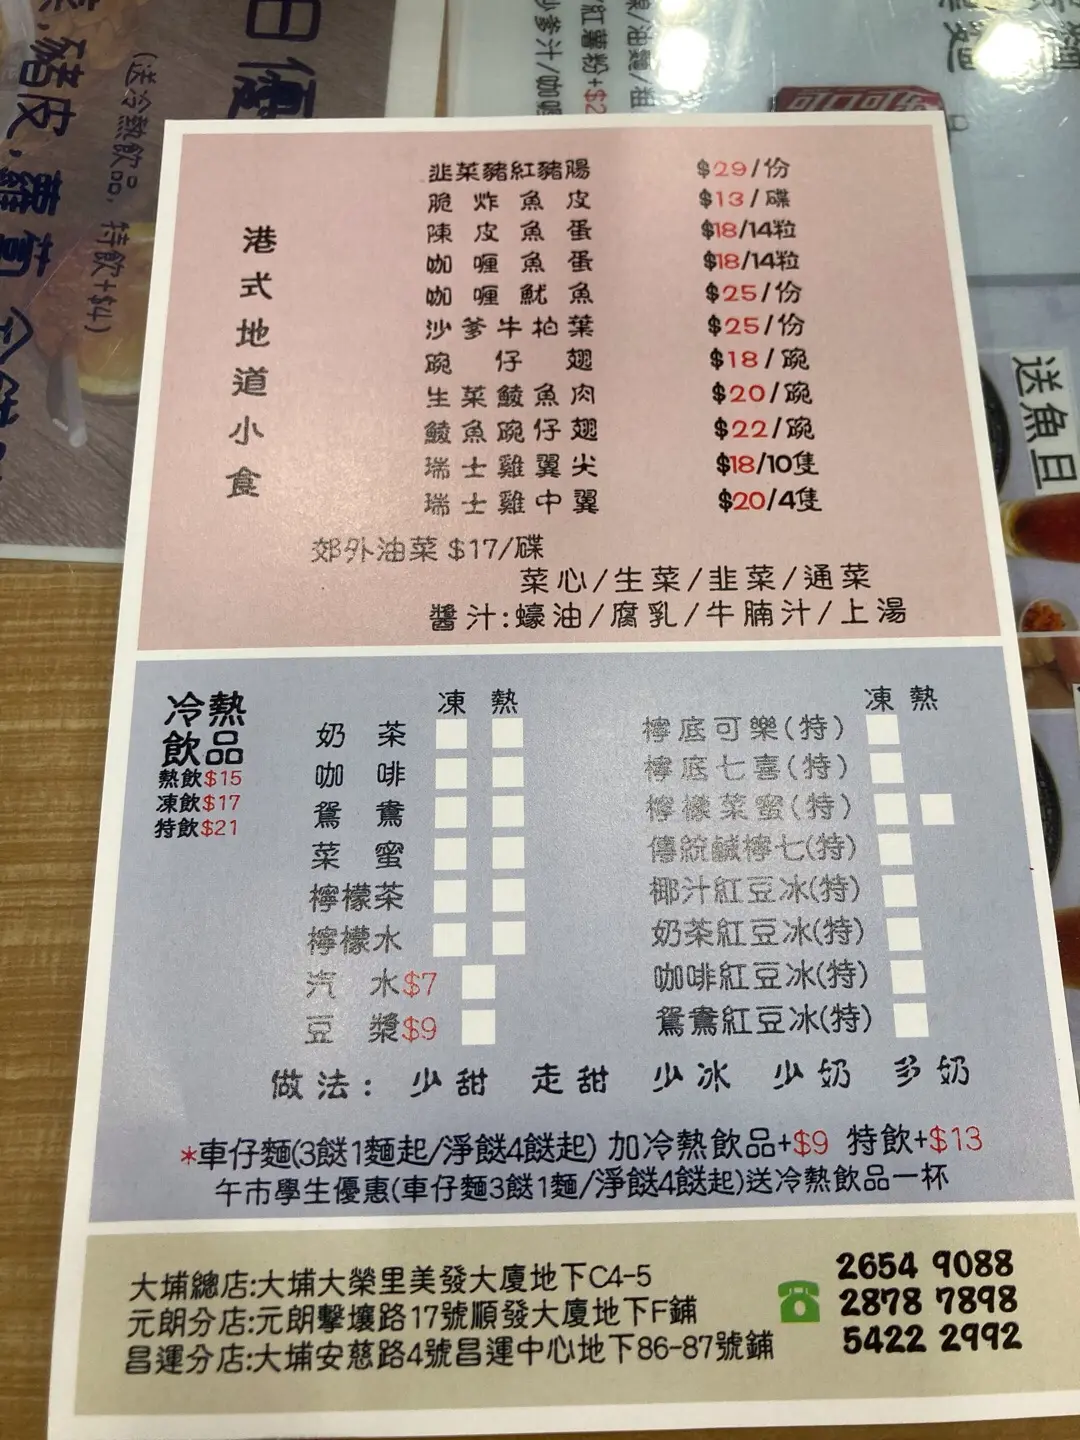 日優
豬皮.蘿蔔
(送冷熱飲品, 特飲+$4)
送魚旦
港式地道小食
韭菜豬紅豬腸 $29/份
脆炸魚皮 $13/碟
陳皮魚蛋 $18/14粒
咖喱魚蛋 $18/14粒
咖喱魷魚 $25/份
沙爹牛柏葉 $25/份
碗仔翅 $18/碗
生菜鯪魚肉 $20/碗
鯪魚碗仔翅 $22/碗
瑞士雞翼尖 $18/10隻
瑞士雞中翼 $20/4隻
郊外油菜 $17/碟
菜心/生菜/韭菜/通菜
醬汁:蠔油/腐乳/牛腩汁/上湯
冷熱飲品
熱飲$15
凍飲$17
特飲$21
凍 熱
奶茶
咖啡
鴛鴦
菜蜜
檸檬茶
檸檬水
汽水$7
豆漿$9
凍 熱
檸底可樂(特)
檸底七喜(特)
檸檬菜蜜(特)
傳統鹹檸七(特)
椰汁紅豆冰(特)
奶茶紅豆冰(特)
咖啡紅豆冰(特)
鴛鴦紅豆冰(特)
做法: 少甜 走甜 少冰 少奶 多奶
*車仔麵(3餸1麵起/淨餸4餸起) 加冷熱飲品+$9 特飲+$13
午市學生優惠(車仔麵3餸1麵/淨餸4餸起)送冷熱飲品一杯
大埔總店:大埔大榮里美發大廈地下C4-5
元朗分店:元朗擊壤路17號順發大廈地下F鋪
昌運分店:大埔安慈路4號昌運中心地下86-87號鋪
2654 9088
2878 7898
5422 2992